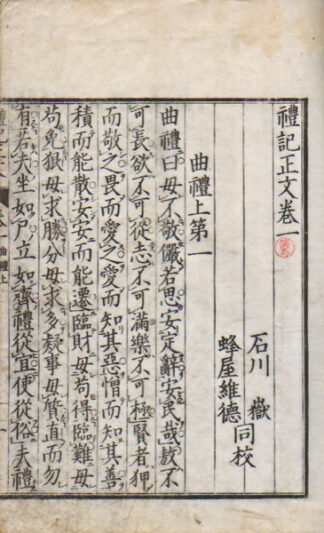 禮記正文卷一
石川 嶽
蜂屋維德 同校
曲禮上第一
曲禮曰毋不敬儼若思安定辭安民哉敖不
可長欲不可從志不可滿樂不可極賢者狎
而敬之畏而愛之愛而知其惡憎而知其善
積而能散安安而能遷臨財毋苟得臨難毋
苟免狠毋求勝分毋求多疑事毋質直而勿
有若夫坐如尸立如齊禮從宜使從俗夫禮
曲禮上